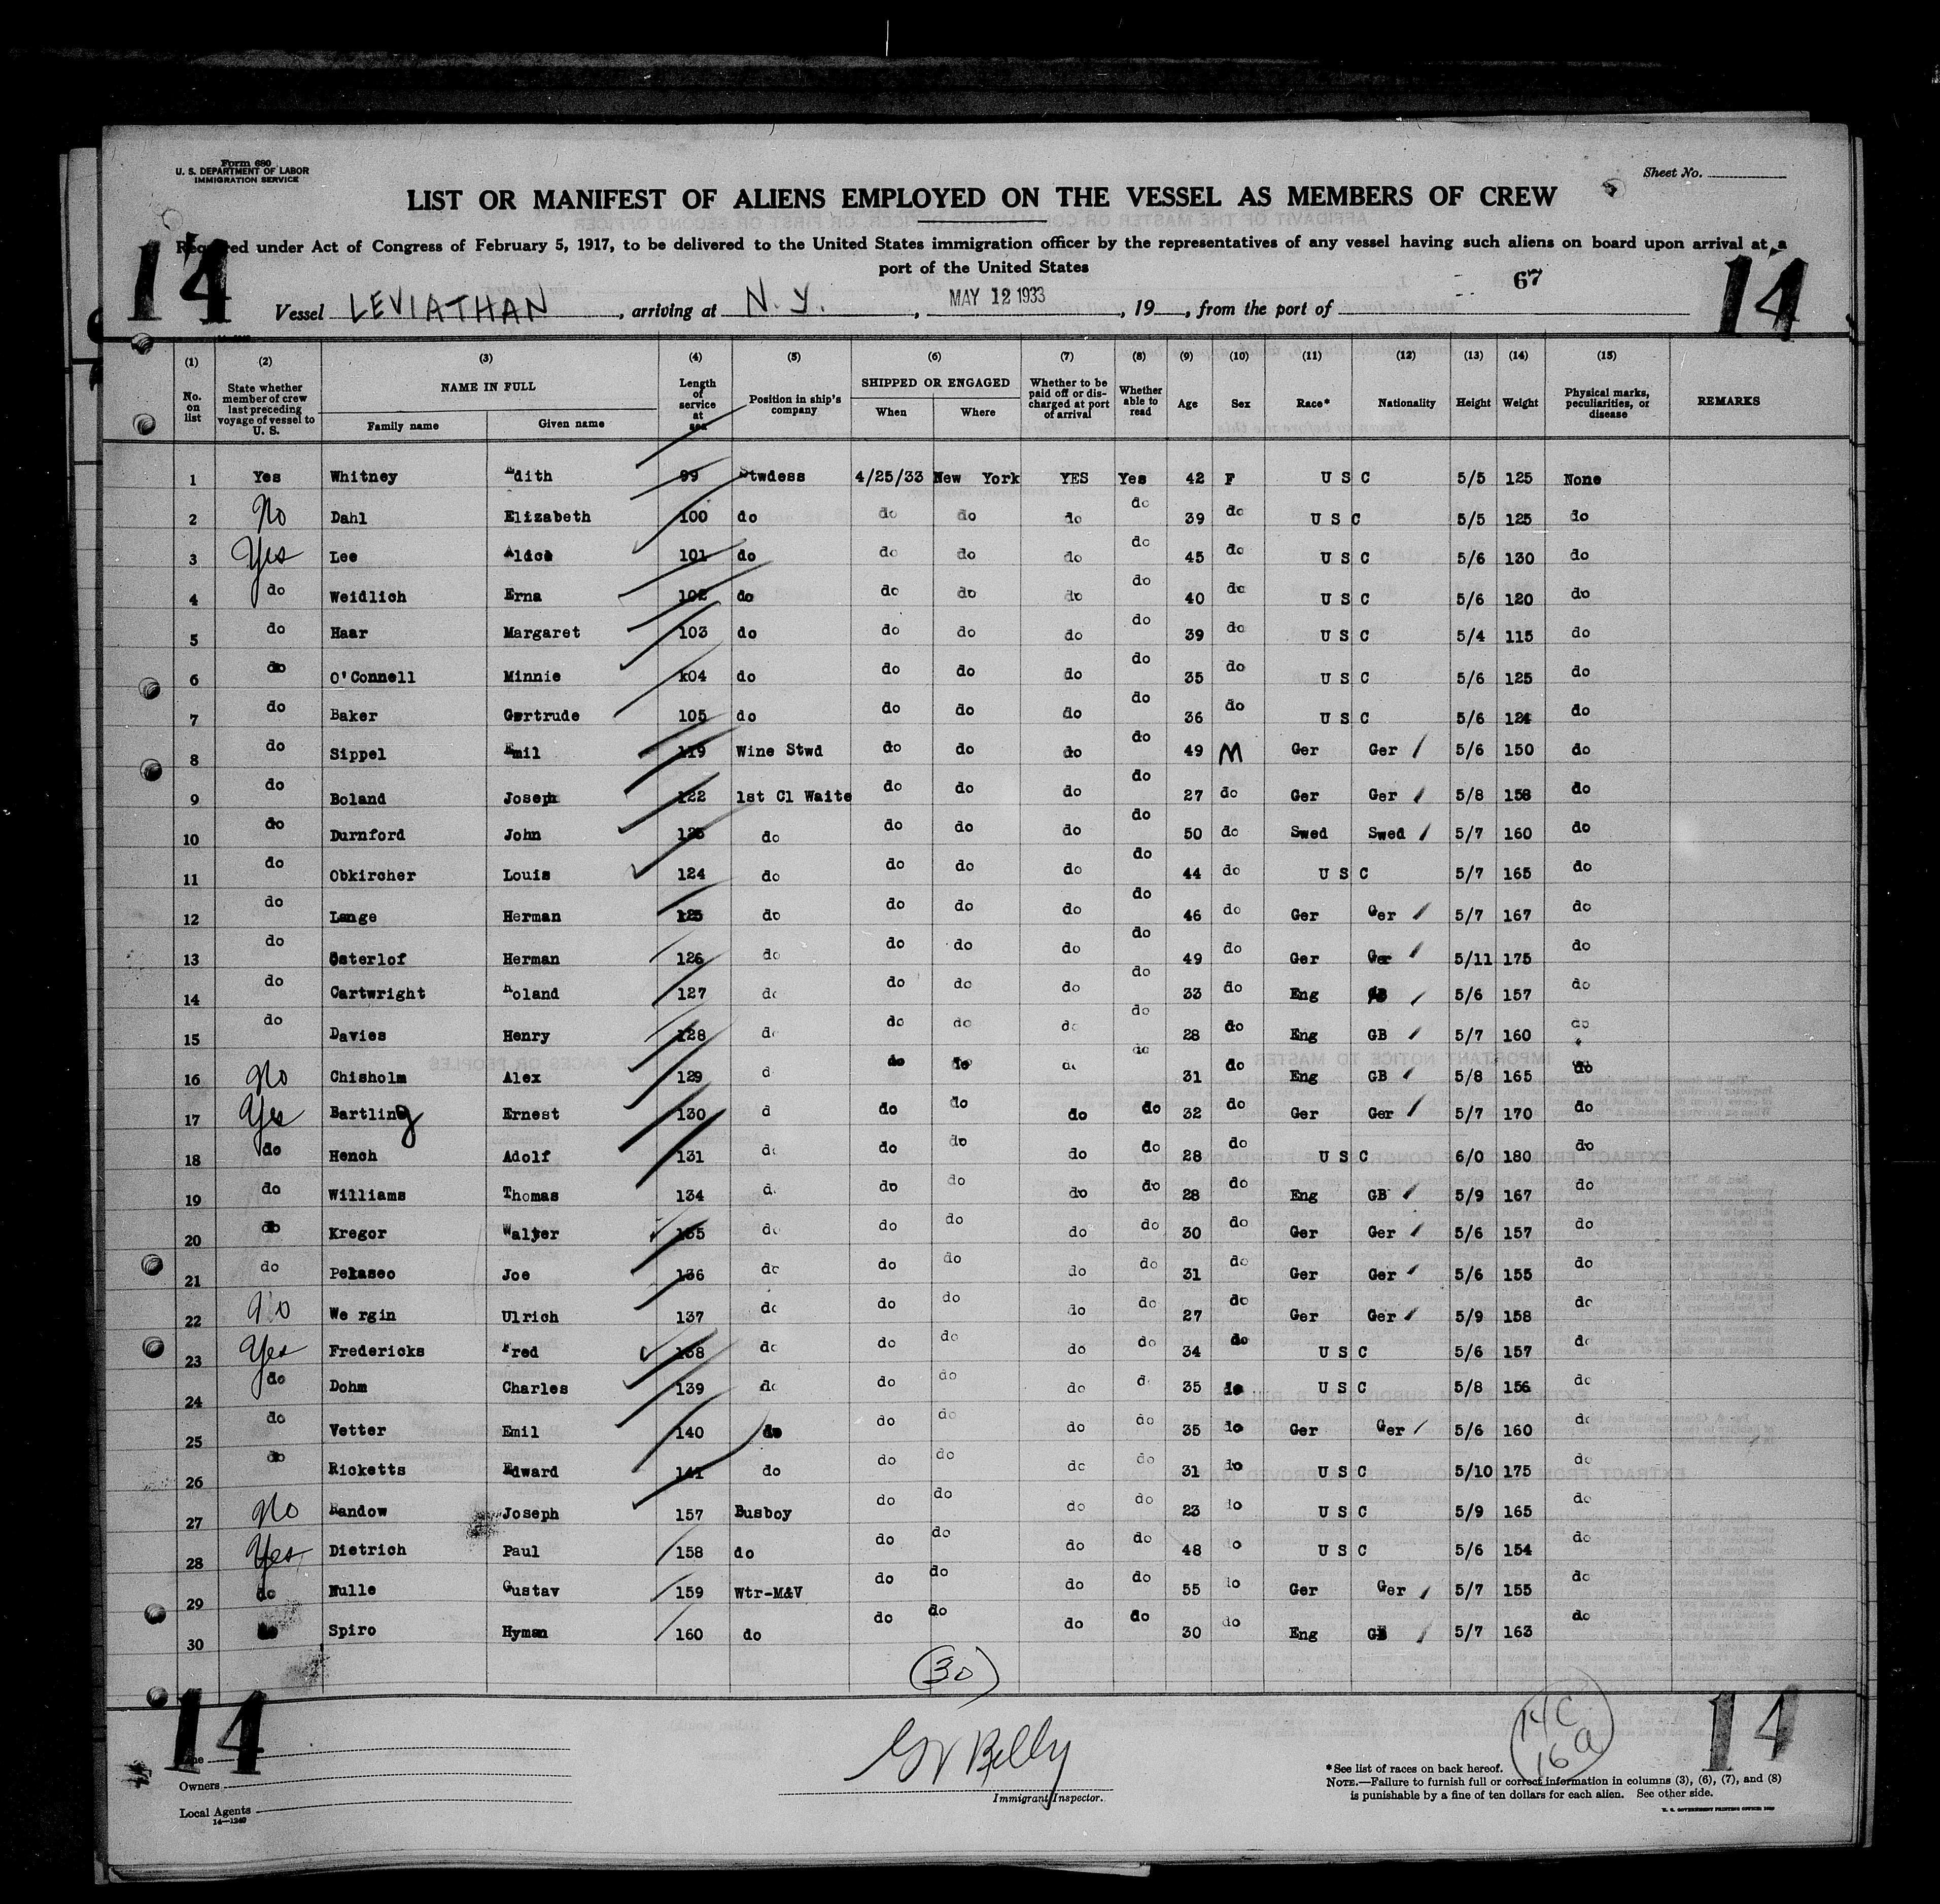 Form 680
U. S. DEPARTMENT OF LABOR
IMMIGRATION SERVICE
Sheet No.
LIST OR MANIFEST OF ALIENS EMPLOYED ON THE VESSEL AS MEMBERS OF CREW
Required under Act of Congress of February 5, 1917, to be delivered to the United States immigration officer by the representatives of any vessel having such aliens on board upon arrival at a
port of the United States
14 67 14
Vessel LEVIATHAN, arriving at N. Y., MAY 12 1933, 19, from the port of
(1) (2) (3) (4) (5) (6) (7) (8) (9) (10) (11) (12) (13) (14) (15)
No. on list State whether member of crew last preceding voyage of vessel to U. S. NAME IN FULL Family name Given name Length of service at sea Position in ship's company SHIPPED OR ENGAGED When Where Whether to be paid off or discharged at port of arrival Whether able to read Age Sex Race* Nationality Height Weight Physical marks, peculiarities, or disease REMARKS
1 Yes Whitney Edith 99 Stwdess 4/25/33 New York YES Yes 42 F U S C 5/5 125 None
2 No Dahl Elizabeth 100 do do do do do 39 do U S C 5/5 125 do
3 Yes Lee 101 do do do do do 45 do U S C 5/6 130 do
4 do Weidlich Erna 102 do do do do do 40 do U S C 5/6 120 do
5 do Haar Margaret 103 do do do do do 39 do U S C 5/4 115 do
6 do O'Connell Minnie 104 do do do do do 35 do U S C 5/6 125 do
7 do Baker Gertrude 105 do do do do do 36 do U S C 5/6 124 do
8 do Sippel Emil 119 Wine Stwd do do do do 49 M Ger Ger 5/6 150 do
9 do Boland Joseph 122 1st Cl Waite do do do do 27 do Ger Ger 5/8 158 do
10 do Durnford John do do do do do 50 do Swed Swed 5/7 160 do
11 do Obkircher Louis 124 do do do do do 44 do U S C 5/7 165 do
12 do Lange Herman 125 do do do do do 46 do Ger Ger 5/7 167 do
13 do Osterlof Herman 126 do do do do do 49 do Ger Ger 5/11 175 do
14 do Cartwright Roland 127 do do do do do 33 do Eng 5/6 157 do
15 do Davies Henry 128 do do do do do 28 do Eng GB 5/7 160 do
16 No Chisholm Alex 129 d do do do do 31 do Eng GB 5/8 165 do
17 Yes Bartling Ernest 130 d do do do do 32 do Ger Ger 5/7 170 do
18 do Hench Adolf 131 do do do do do 28 do U S C 6/0 180 do
19 do Williams Thomas 134 d do do do do 28 do Eng GB 5/9 167 do
20 do Kregor Walter 135 do do do do do 30 do Ger Ger 5/6 157 do
21 do Pekaseo Joe 136 do do do do do 31 do Ger Ger 5/6 155 do
22 No We rgin Ulrich 137 do do do do do 27 do Ger Ger 5/9 158 do
23 Yes Fredericks Fred 138 do do do do do 34 do U S C 5/6 157 do
24 do Dohm Charles 139 do do do do d 35 do U S C 5/8 156 do
25 do Vetter Emil 140 do do do do do 35 do Ger Ger 5/6 160 do
26 do Ricketts Edward 141 do do do do do 31 do U S C 5/10 175 do
27 No Randow Joseph 157 Busboy do do do do 23 do U S C 5/9 165 do
28 Yes Dietrich Paul 158 do do do do do 48 do U S C 5/6 154 do
29 do Nulle Gustav 159 Wtr-M&V do do do do 55 do Ger Ger 5/7 155 do
30 do Spiro Hyman 160 do do do do do 30 do Eng GB 5/7 163 do
(30)
14 14
Line
Owners
Local Agents
14—1240
Immigrant Inspector.
14 C
16 a
*See list of races on back hereof.
NOTE.—Failure to furnish full or correct information in columns (3), (6), (7), and (8)
is punishable by a fine of ten dollars for each alien. See other side.